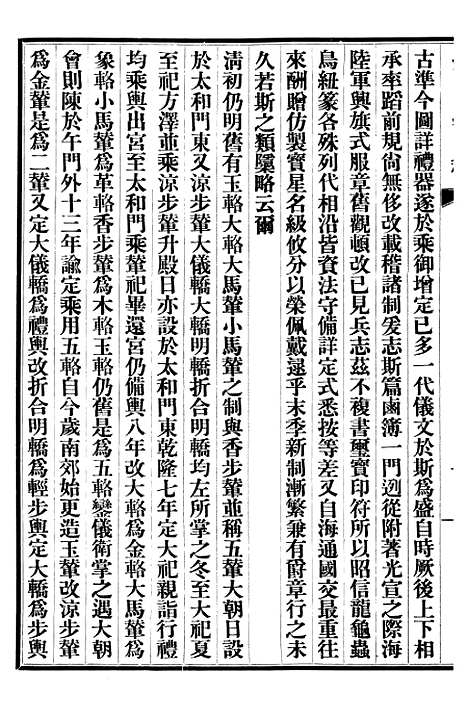 古準今圖詳禮器遂於乘御增定已多一代儀文於斯爲盛自時厥後上下相
承率蹈前規尚無侈改載稽諸制爰志斯篇鹵簿一門迾從附著光宣之際海
陸軍興旗式服章舊觀頓改已見兵志茲不複書璽寶印符所以昭信龍龜蟲
鳥紐篆各殊列代相沿皆資法守備詳定式悉按等差又自海通國交最重往
來酬贈仿製寶星名級攸分以榮佩戴還乎末季新制漸繁兼有爵章行之未
久若斯之類隱略云爾
淸初仍明舊有玉輅大輅大馬輦小馬輦之制與香步輦並稱五輦大朝日設
於太和門東又涼步輦大儀轎大轎明轎折合明轎均左所掌之冬至大祀夏
至祀方澤並乘涼步輦升殿日亦設於太和門東乾隆七年定大祀親詣行禮
均乘輿出宮至太和門乘輦祀畢還宮仍備輿八年改大輅爲金輅大馬輦爲
象輅小馬輦爲革輅香步輦爲木輅玉輅仍舊是爲五輅鑾儀衛掌之遇大朝
會則陳於午門外十三年諭定乘用五輅自今歲南郊始更造玉輦改涼步輦
爲金輦是爲二輦又定大儀轎爲禮輿改折合明轎爲輕步輿定大轎爲步輿